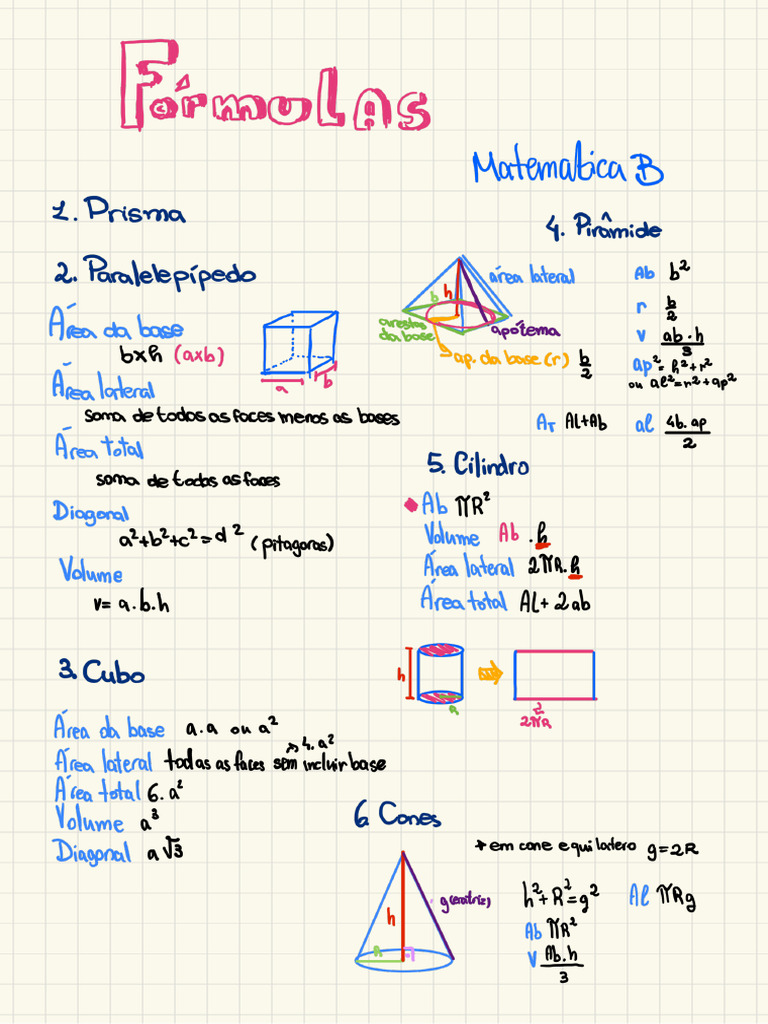 Fórmulas
Matematica B
1. Prisma
2. Paralelepípedo
Área da base
bxh (axb)
a
b
Área lateral
soma de todos as faces menos as bases
Área total
soma de todas as faces
Diagonal
a²+b²+c²=d² (pitagoras)
Volume
v= a.b.h
3. Cubo
Área da base a.a ou a²
Área lateral todas as faces sem incluir base
→ 4.a²
Área total 6.a²
Volume a³
Diagonal a√3
4. Pirâmide
área lateral
h
b
arestas
da base
apótema
ap. da base (r) b/2
Ab b²
r b/2
v ab.h/3
ap²=h²+r²
ou al²=r²+ap²
AT AL+Ab
al 4b.ap/2
5. Cilindro
Ab πR²
Volume Ab .h
Área lateral 2πR.h
Área total AL+ 2ab
h
R
2πR
6. Cones
* em cone equilatero g=2R
h
g(eratriz)
R
h²+R²=g²
Al πRg
Ab πR²
V Ab.h/3